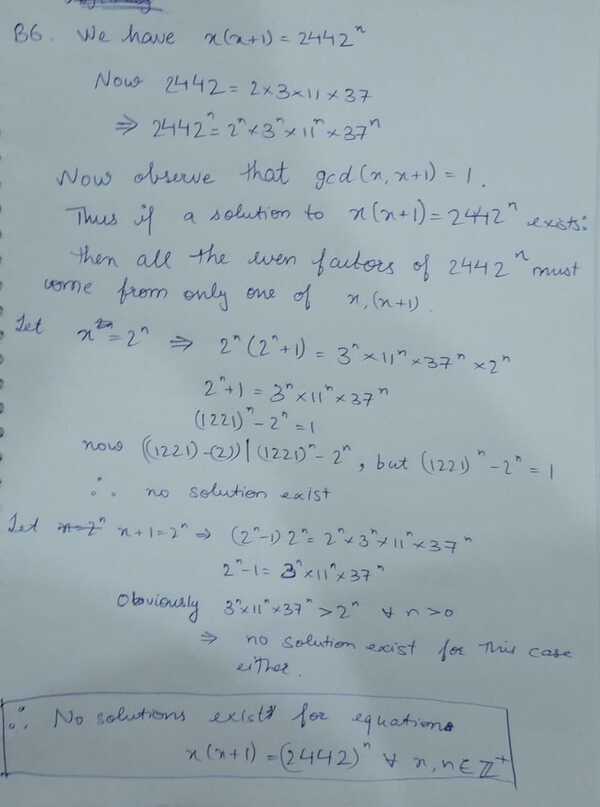 B6. We have x(x+1) = 2442ⁿ
Now 2442 = 2×3×11×37
⇒ 2442ⁿ = 2ⁿ×3ⁿ×11ⁿ×37ⁿ
Now observe that gcd(x, x+1) = 1.
Thus if a solution to x(x+1) = 2442ⁿ exists:
then all the even factors of 2442ⁿ must
come from only one of x, (x+1).
Let x = 2ⁿ ⇒ 2ⁿ(2ⁿ+1) = 3ⁿ×11ⁿ×37ⁿ×2ⁿ
2ⁿ+1 = 3ⁿ×11ⁿ×37ⁿ
(1221)ⁿ - 2ⁿ = 1
now ((1221)-(2)) | (1221)ⁿ - 2ⁿ, but (1221)ⁿ - 2ⁿ = 1
∴ no solution exist
Let x+1 = 2ⁿ ⇒ (2ⁿ-1) 2ⁿ = 2ⁿ×3ⁿ×11ⁿ×37ⁿ
2ⁿ-1 = 3ⁿ×11ⁿ×37ⁿ
Obviously 3ⁿ×11ⁿ×37ⁿ > 2ⁿ ∀ n>0
⇒ no solution exist for this case
either.
∴ No solutions exist for equation
x(x+1) = (2442)ⁿ ∀ x, n ∈ ℤ⁺